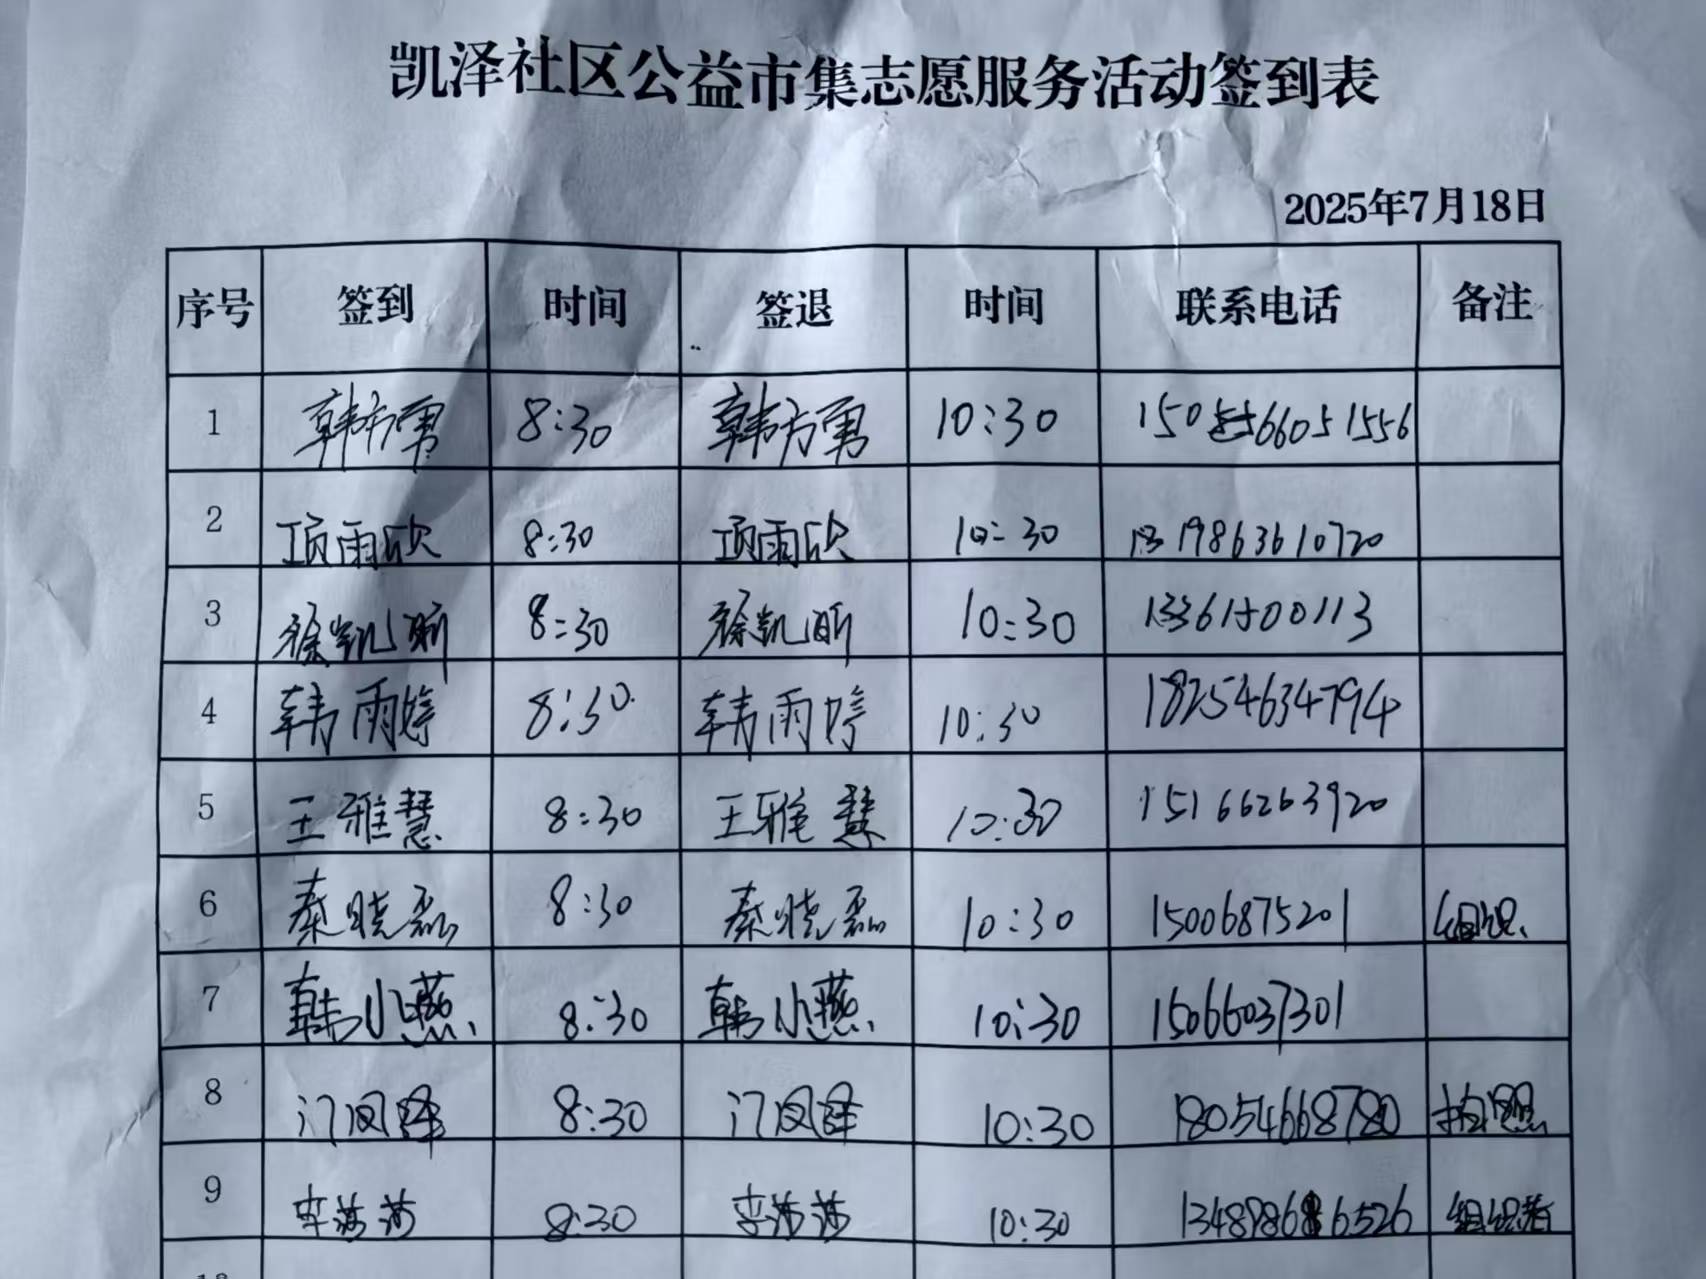 凯泽社区公益市集志愿服务活动签到表
2025年7月18日
序号 签到 时间 签退 时间 联系电话 备注
1 韩方勇 8:30 韩方勇 10:30 150 66051556
2 项雨欣 8:30 项雨欣 10:30 19863610720
3 徐凯昕 8:30 徐凯昕 10:30 13361500113
4 韩雨婷 8:30 韩雨婷 10:30 18254634794
5 王雅慧 8:30 王雅慧 10:30 15166263920
6 秦晓磊 8:30 秦晓磊 10:30 15006875201 组织
7 韩小燕 8:30 韩小燕 10:30 15066037301
8 门凤泽 8:30 门凤泽 10:30 18054668780 拍照
9 李莎莎 8:30 李莎莎 10:30 134898686526 组织者